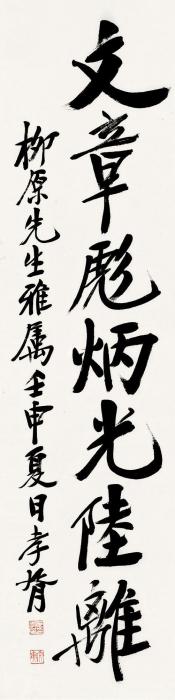 文章彪炳光陸離
柳原先生雅属壬申夏日孝胥